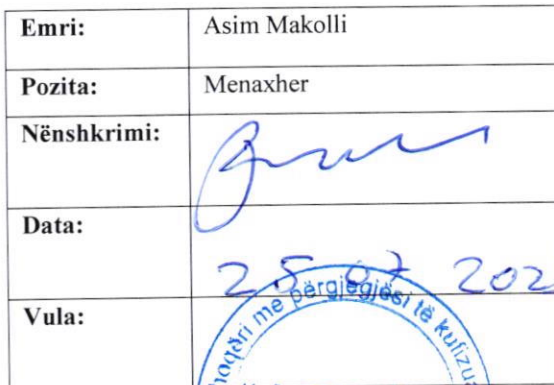 Emri: Asim Makolli
Pozita: Menaxher
Nënshkrimi:
Data: 25 07 202
Vula:
me përgjegjësi të